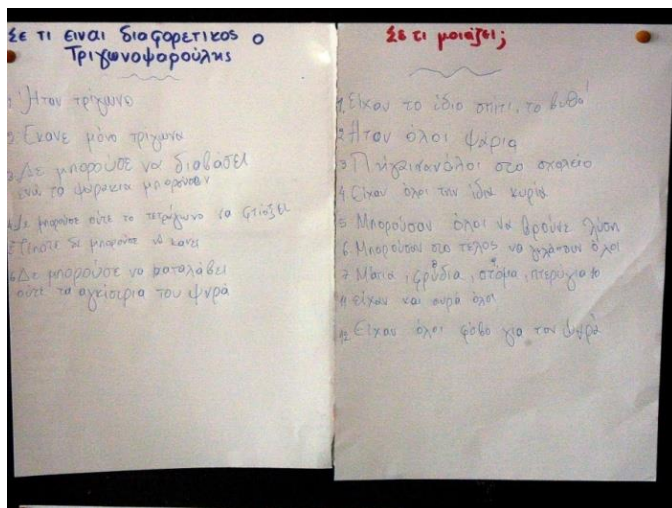 Σε τι ειναι διαφορετικος ο
Τριγωνοψαρούλης
1 Ήταν τρίγωνο
2 Έκανε μόνο τρίγωνα
3 Δε μπορούσε να διαβάσει
ενώ τα ψαράκια μπορούσαν
4 Δε μπορούσε ούτε το τετράγωνο να φτιάξει
5 Τίποτε δε μπορούσε να κάνει
6 Δε μπορούσε να καταλάβει
ούτε τα αγκίστρια του ψαρά
Σε τι μοιάζει;
1. Είχαν το ίδιο σπίτι, το βυθό
2 Ήταν όλοι ψάρια
3 Πήγαιναν όλοι στο σχολείο
4 Είχαν όλοι την ίδια κυρία
5 Μπορούσαν όλοι να βρούνε λύση
6. Μπορούσαν στο τέλος να γελάσουν όλοι
7 Μάτια, φρύδια, στόμα, πτερύγια 10
11 Είχαν και ουρά όλοι
12 Είχαν όλοι φόβο για τον ψαρά